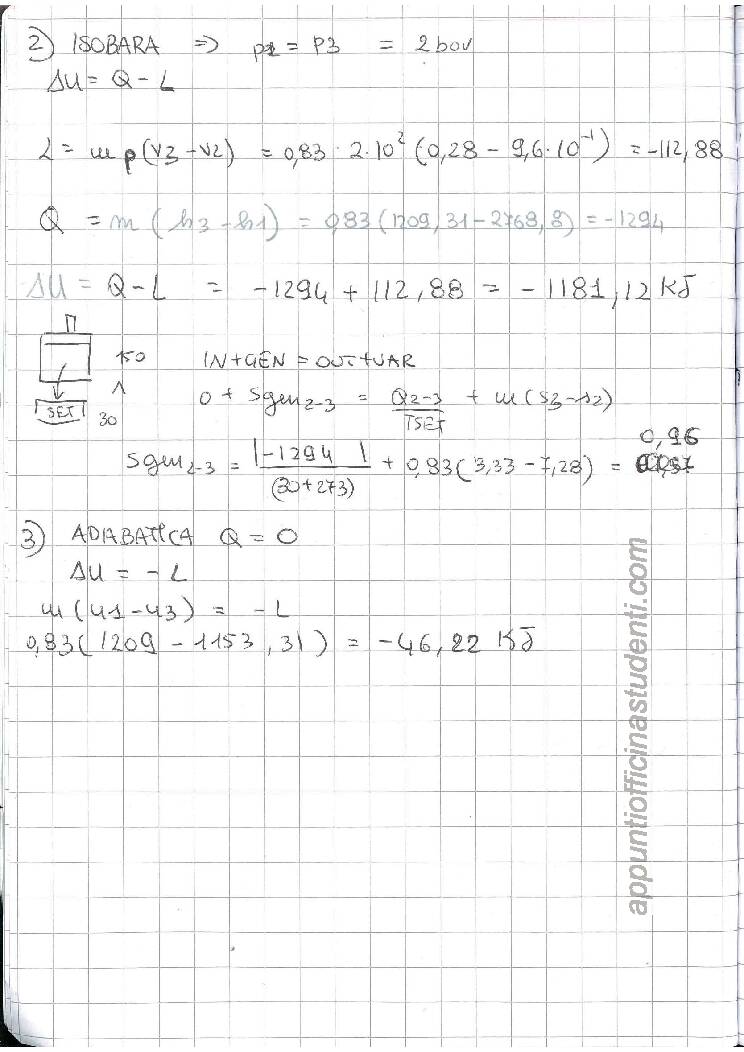 2) ISOBARA => p2 = p3 = 2 bar
ΔU = Q - L
L = m p (v3 - v2) = 0,83 · 2·10² (0,28 - 9,6·10⁻¹) = -112,88
Q = m (h3 - h1) = 0,83 (1209,31 - 2768,8) = -1294
ΔU = Q - L = -1294 + 112,88 = -1181,12 KJ
150
IN + GEN = OUT + VAR
0 + Sgen2-3 = Q2-3 / TSET + m (s3 - s2)
SET 30
Sgen2-3 = |-1294| / (30+273) + 0,83 (3,33 - 7,28) = 0,96
3) ADIABATICA Q = 0
ΔU = - L
m (u1 - u3) = - L
0,83 (1209 - 1153,31) = -46,22 KJ
appuntiofficinastudenti.com